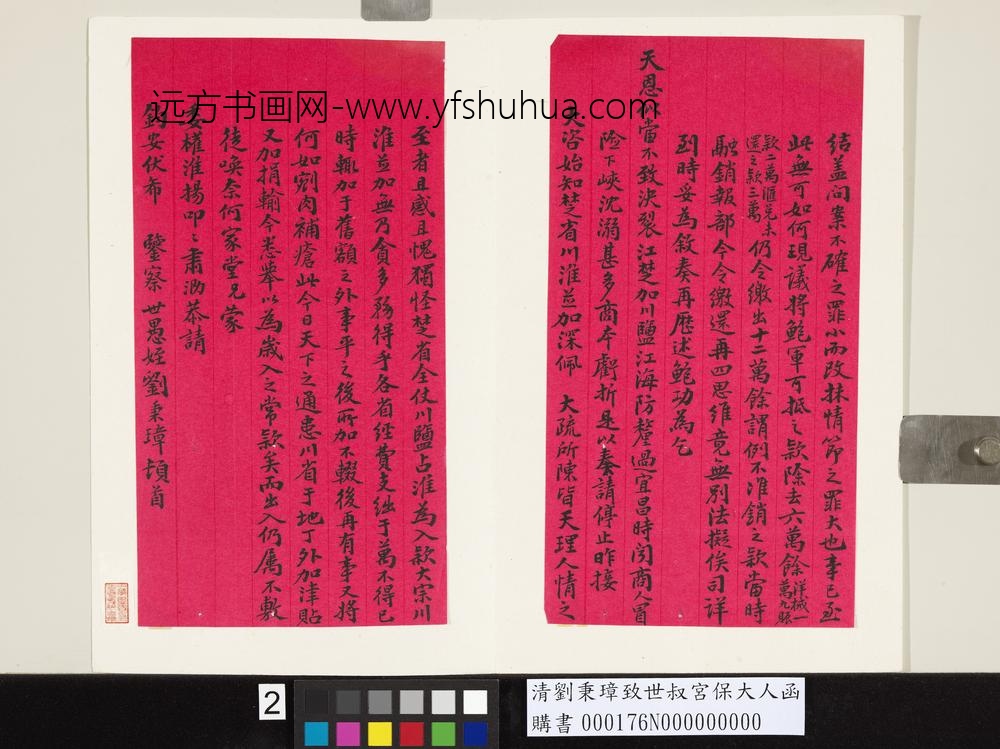 結蓋問案不確之罪小而改抹情節之罪大也事已至
此無可如何現議將鮑軍可抵之款除去六萬餘洋械一萬九賬
款二萬滙兌未還之款三萬仍令繳出十二萬餘謂例不准銷之款當時
融銷報部今令繳還再四思維竟無別法擬俟司詳
到時妥為敘奏再歷述鮑功為乞
天恩似當不致決裂江楚加川鹽江海防釐過宜昌時聞商人冒
險下峽沈溺甚多商本虧折是以奏請停止昨接
大咨始知楚省川淮並加深佩 大疏所陳皆天理人情之
至者且感且愧獨怪楚省全仗川鹽占淮為入款大宗川
淮並加無乃貪多務得乎各省經費支絀于萬不得已
時輒加于舊額之外事平之後所加不輟後再有事又將
何如剜肉補瘡此今日天下之通患川省于地丁外加津貼
又加捐輸今悉舉以為歲入之常款矣而出入仍屬不敷
徒喚奈何家堂兄蒙
委權淮揚叩叩肅泐恭請
鈞安伏布 鑒察 世愚姪劉秉璋頓首
远方书画网-www.yfshuhua.com
2
清劉秉璋致世叔宮保大人函
購書 000176N000000000